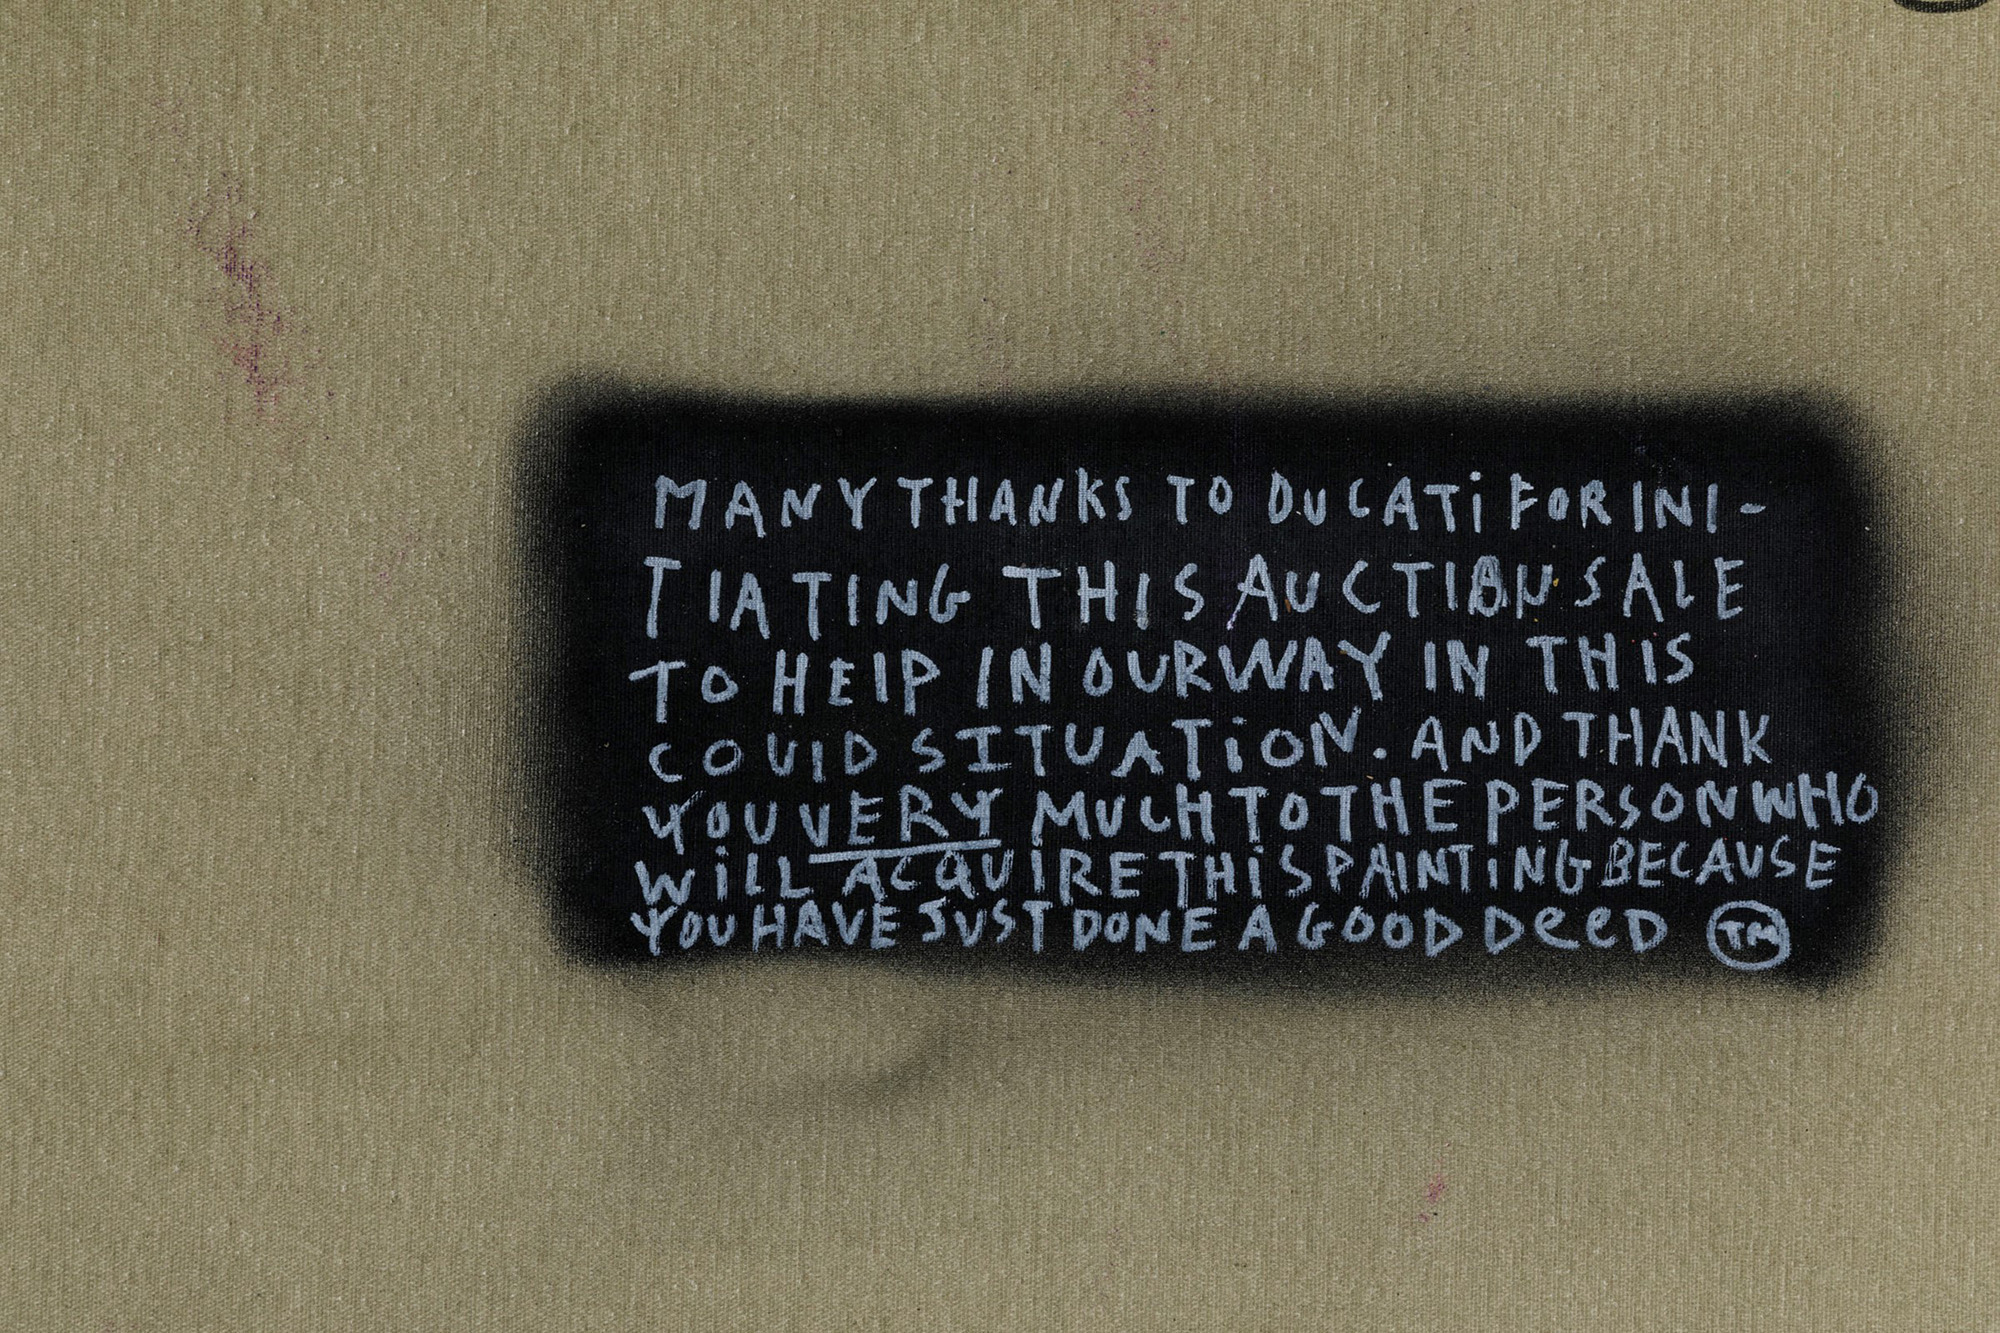 MANY THANKS TO DUCATi FOR INI-
TIATING THIS AUCTION SALE
TO HElP IN OUR WAY IN THIS
COVID SITUATiON. AND THANK
YOU VERY MUCH TO THE PERSON WHO
WiLL ACQUiRE THiS PAINTiNG BECAUSE
YOU HAVE JUST DONE A GOOD DeeD TM